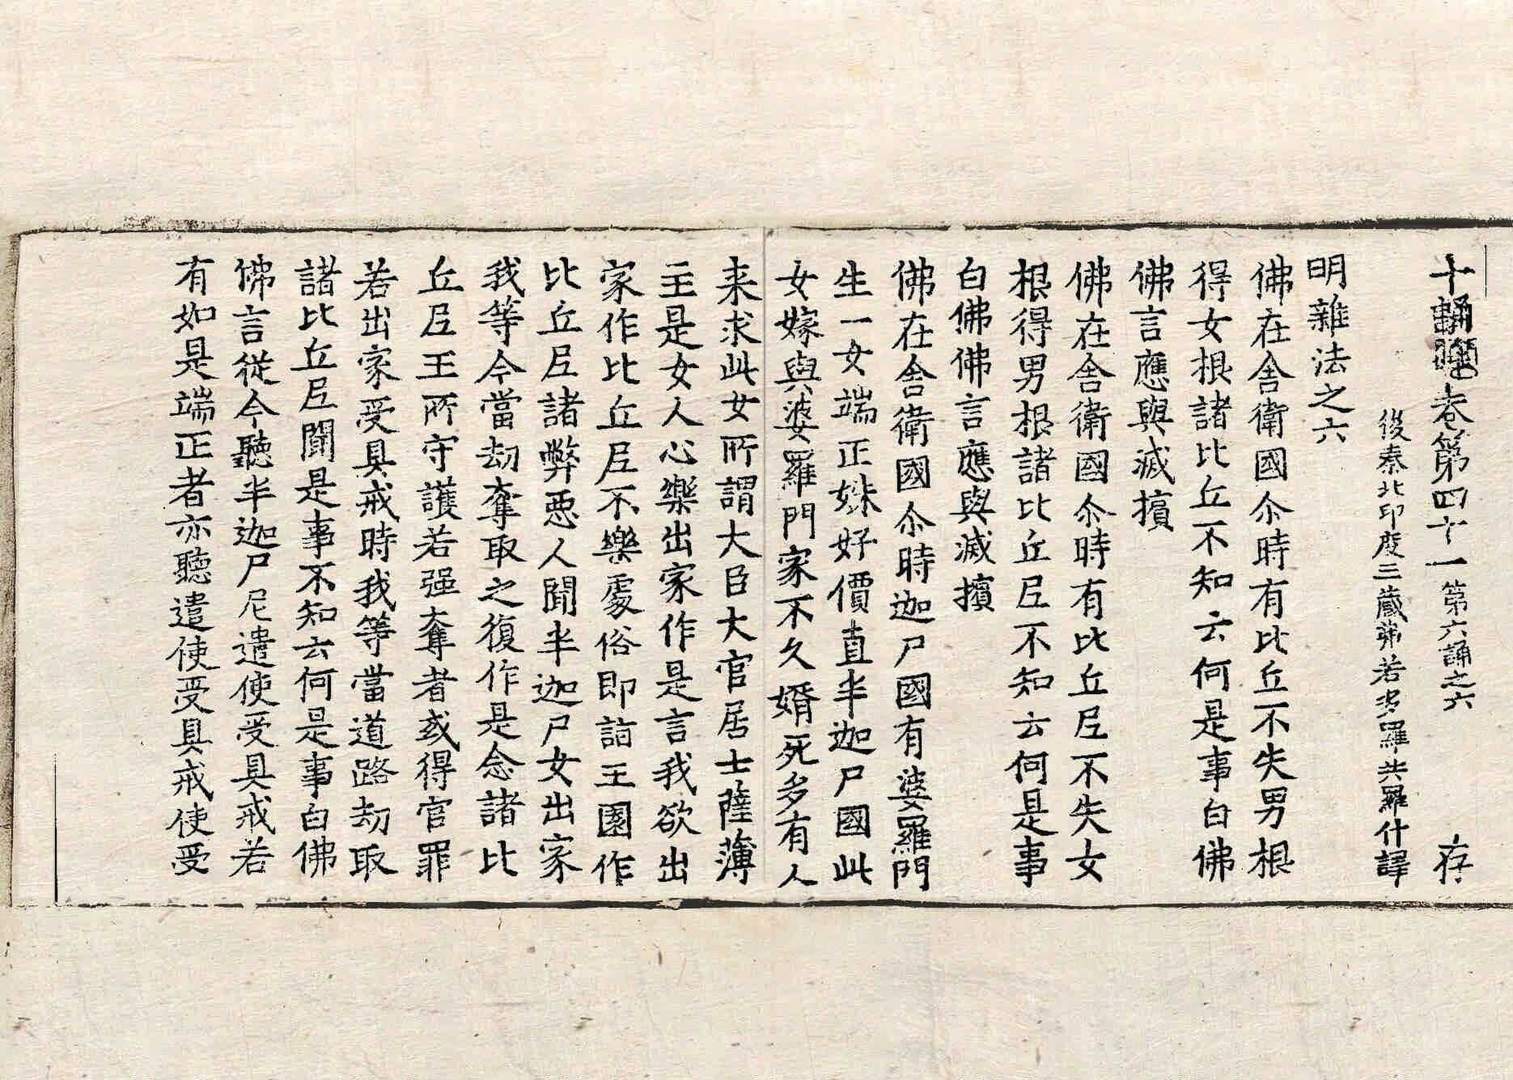 十誦律卷第四十一 第六誦之六 存
後秦北印度三藏弗若多羅共羅什譯
明雜法之六
佛在舍衛國尒時有比丘不失男根
得女根諸比丘不知云何是事白佛
佛言應與滅擯
佛在舍衛國尒時有比丘尼不失女
根得男根諸比丘尼不知云何是事
白佛佛言應與滅擯
佛在舍衛國尒時迦尸國有婆羅門
生一女端正姝好價直半迦尸國此
女嫁與婆羅門家不久婿死多有人
来求此女所謂大臣大官居士薩薄
主是女人心樂出家作是言我欲出
家作比丘尼不樂處俗即詣王園作
比丘尼諸弊惡人聞半迦尸女出家
我等今當劫奪取之復作是念諸比
丘尼王所守護若强奪者或得官罪
若出家受具戒時我等當道路劫取
諸比丘尼聞是事不知云何是事白佛
佛言從今聽半迦尸尼遣使受具戒若
有如是端正者亦聽遣使受具戒使受